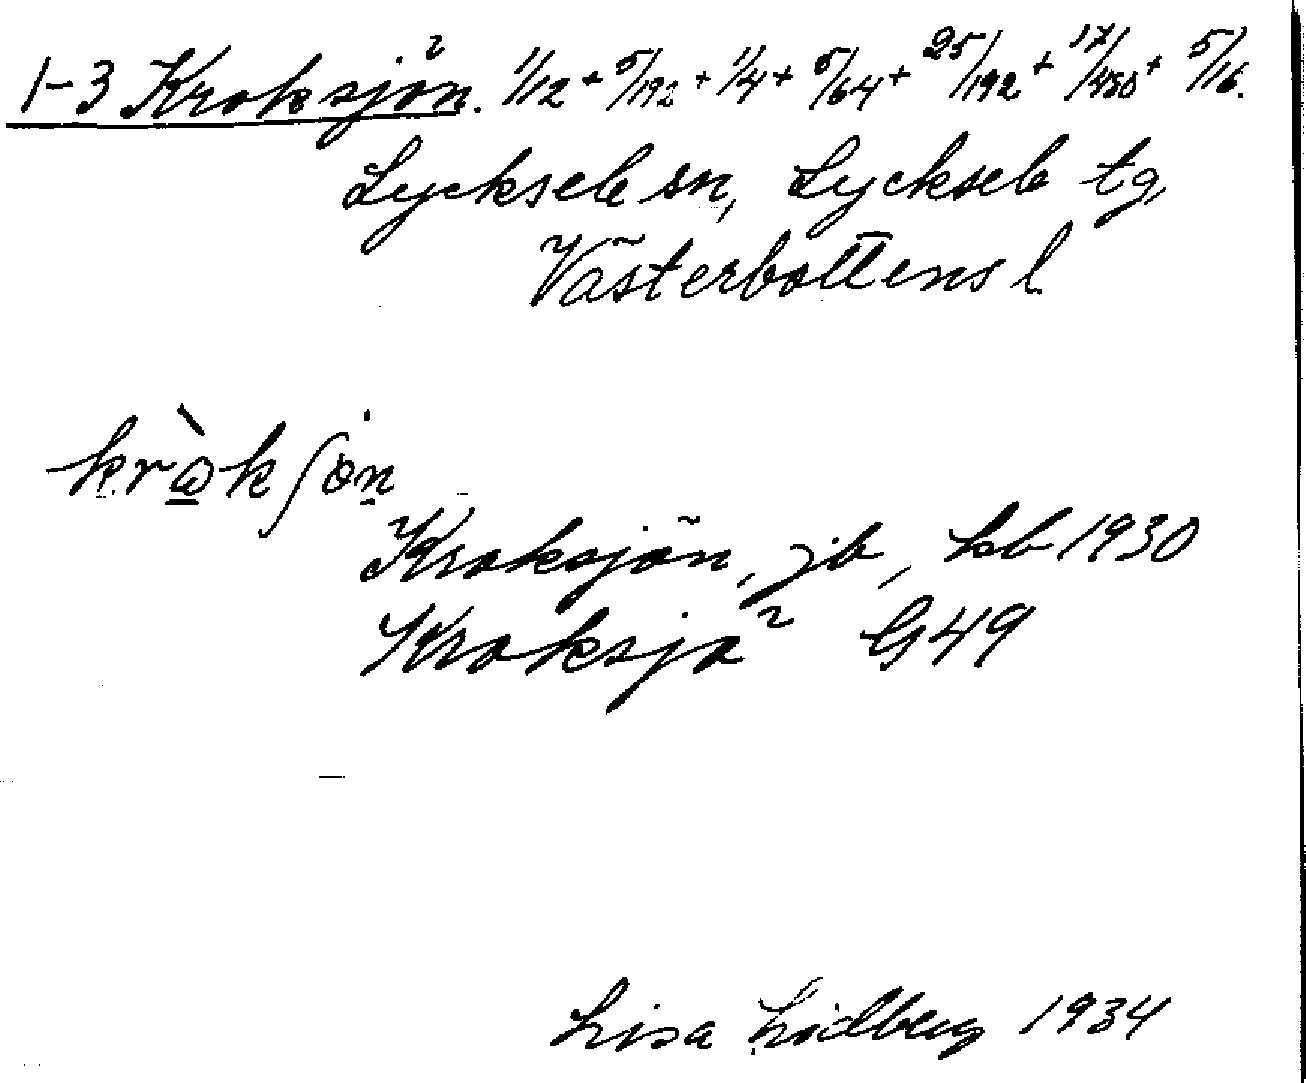 1-3 Kroksjön. 1/12 + 5/192 + 1/4 + 5/64 + 25/192 + 17/480 + 5/16.
Lycksele sn, Lycksele tg,
Västerbottens l
kròkʃön
Kroksjön, jb, kb 1930
Kroksjö G49
Lisa Lidberg 1934